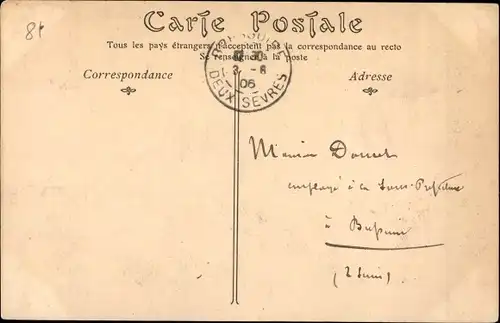 84
Carte Postale
Tous les pays étrangers n'acceptent pas la correspondance au recto
Se renseigner à la poste
Correspondance
Adresse
3 - 6
06
DEUX-SÈVRES
employé à la Sous-Préfecture
à